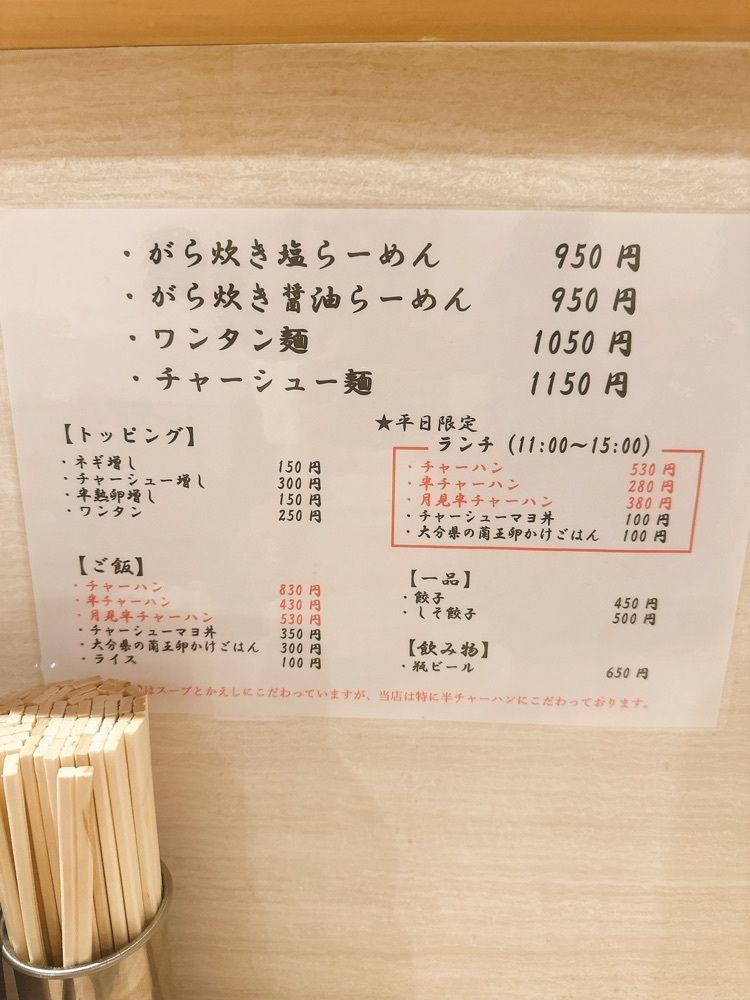 ・がら炊き塩らーめん 950円
・がら炊き醤油らーめん 950円
・ワンタン麺 1050円
・チャーシュー麺 1150円
【トッピング】
・ネギ増し 150円
・チャーシュー増し 300円
・半熟卵増し 150円
・ワンタン 250円
★平日限定
ランチ(11:00〜15:00)
・チャーハン 530円
・半チャーハン 280円
・月見半チャーハン 380円
・チャーシューマヨ丼 100円
・大分県の蘭王卵かけごはん 100円
【ご飯】
・チャーハン 830円
・半チャーハン 430円
・月見半チャーハン 530円
・チャーシューマヨ丼 350円
・大分県の蘭王卵かけごはん 300円
・ライス 100円
【一品】
・餃子 450円
・しそ餃子 500円
【飲み物】
・瓶ビール 650円
はスープとかえしにこだわっていますが、当店は特に半チャーハンにこだわっております。